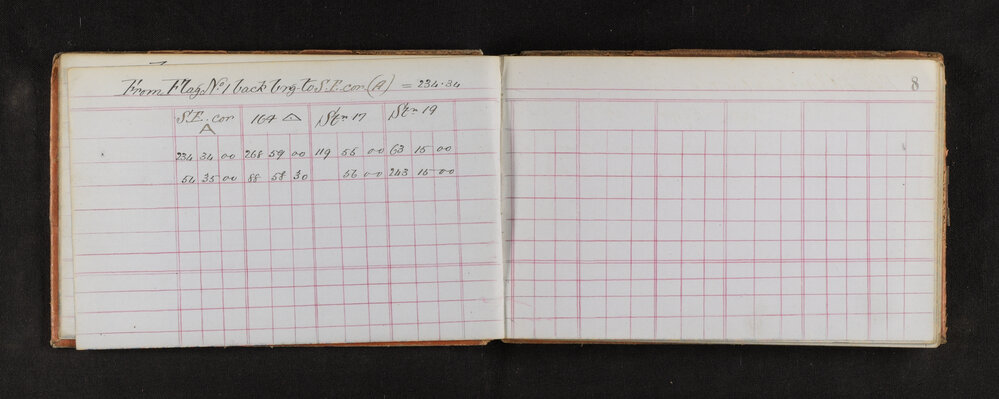 From Flag No 1 back brg to S.E. cor (A) = 234.34
8
S.E. cor A 164 △ Stn 17 Stn 19
234 34 00 268 59 00 119 55 00 63 15 00
54 35 00 88 58 30 56 00 243 15 00